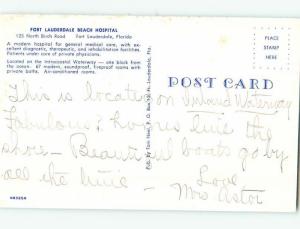 FORT LAUDERDALE BEACH HOSPITAL
125 North Birch Road Fort Lauderdale, Florida
A modern hospital for general medical care, with ex-
cellent diagnostic, therapeutic, and rehabilitation facilities.
Patients under care of private physicians.
Located on the Intracoastal Waterway — one block from
the ocean. 67 modern, soundproof, fireproof rooms with
private baths. Air-conditioned rooms.
PLACE
STAMP
HERE
POST CARD
This is located on Inland Waterway
Fabulous? homes line the
shore - Beautiful boats go by
all the time -
Love
Mrs Astor
Lauderdale, Fla.